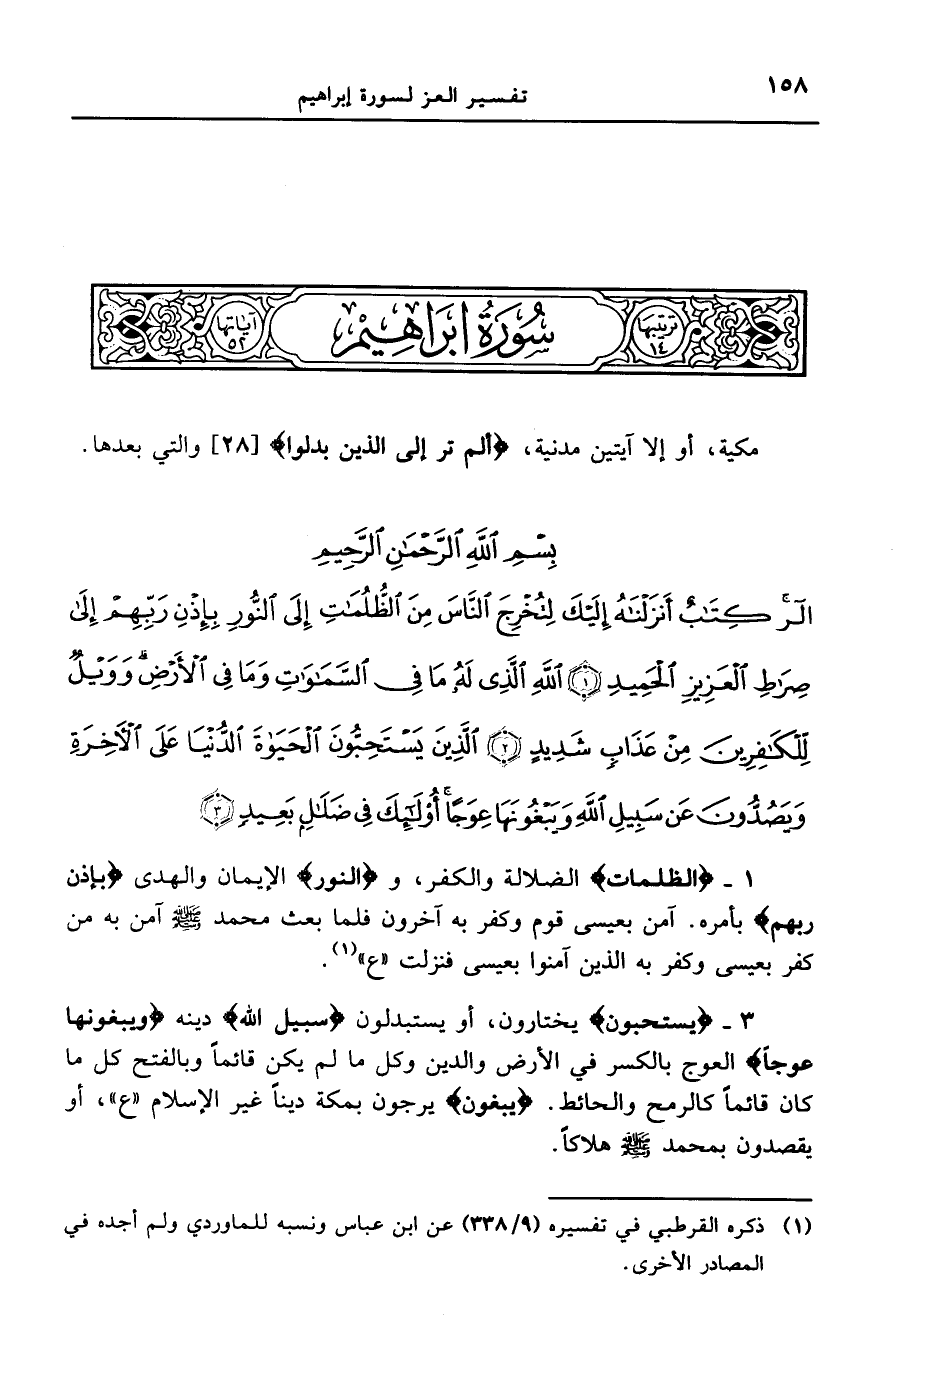 ١٥٨
تفسير العز لسورة إبراهيم
ترتيبها ١٤
سُورَةُ ابْرَاهِيْمَ
آياتها ٥٢
مكية، أو إلا آيتين مدنية، ﴿ألم تر إلى الذين بدلوا﴾ [٢٨] والتي بعدها.
بِسْمِ ٱللَّهِ ٱلرَّحْمَٰنِ ٱلرَّحِيمِ
الٓرۚ كِتَٰبٌ أَنزَلْنَٰهُ إِلَيْكَ لِتُخْرِجَ ٱلنَّاسَ مِنَ ٱلظُّلُمَٰتِ إِلَى ٱلنُّورِ بِإِذْنِ رَبِّهِمْ إِلَىٰ
صِرَٰطِ ٱلْعَزِيزِ ٱلْحَمِيدِ ﴿١﴾ ٱللَّهِ ٱلَّذِى لَهُۥ مَا فِى ٱلسَّمَٰوَٰتِ وَمَا فِى ٱلْأَرْضِۗ وَوَيْلٌ
لِّلْكَٰفِرِينَ مِنْ عَذَابٍ شَدِيدٍ ﴿٢﴾ ٱلَّذِينَ يَسْتَحِبُّونَ ٱلْحَيَوٰةَ ٱلدُّنْيَا عَلَى ٱلْآخِرَةِ
وَيَصُدُّونَ عَن سَبِيلِ ٱللَّهِ وَيَبْغُونَهَا عِوَجًاۚ أُو۟لَٰٓئِكَ فِى ضَلَٰلٍۭ بَعِيدٍ ﴿٣﴾
١ ـ ﴿الظلمات﴾ الضلالة والكفر، و ﴿النور﴾ الإيمان والهدى ﴿بإذن
ربهم﴾ بأمره. آمن بعيسى قوم وكفر به آخرون فلما بعث محمد ﷺ آمن به من
كفر بعيسى وكفر به الذين آمنوا بعيسى فنزلت «ع»(١).
٣ ـ ﴿يستحبون﴾ يختارون، أو يستبدلون ﴿سبيل الله﴾ دينه ﴿ويبغونها
عوجاً﴾ العوج بالكسر في الأرض والدين وكل ما لم يكن قائماً وبالفتح كل ما
كان قائماً كالرمح والحائط. ﴿يبغون﴾ يرجون بمكة ديناً غير الإسلام «ع»، أو
يقصدون بمحمد ﷺ هلاكاً.
(١) ذكره القرطبي في تفسيره (٣٣٨/٩) عن ابن عباس ونسبه للماوردي ولم أجده في
المصادر الأخرى.